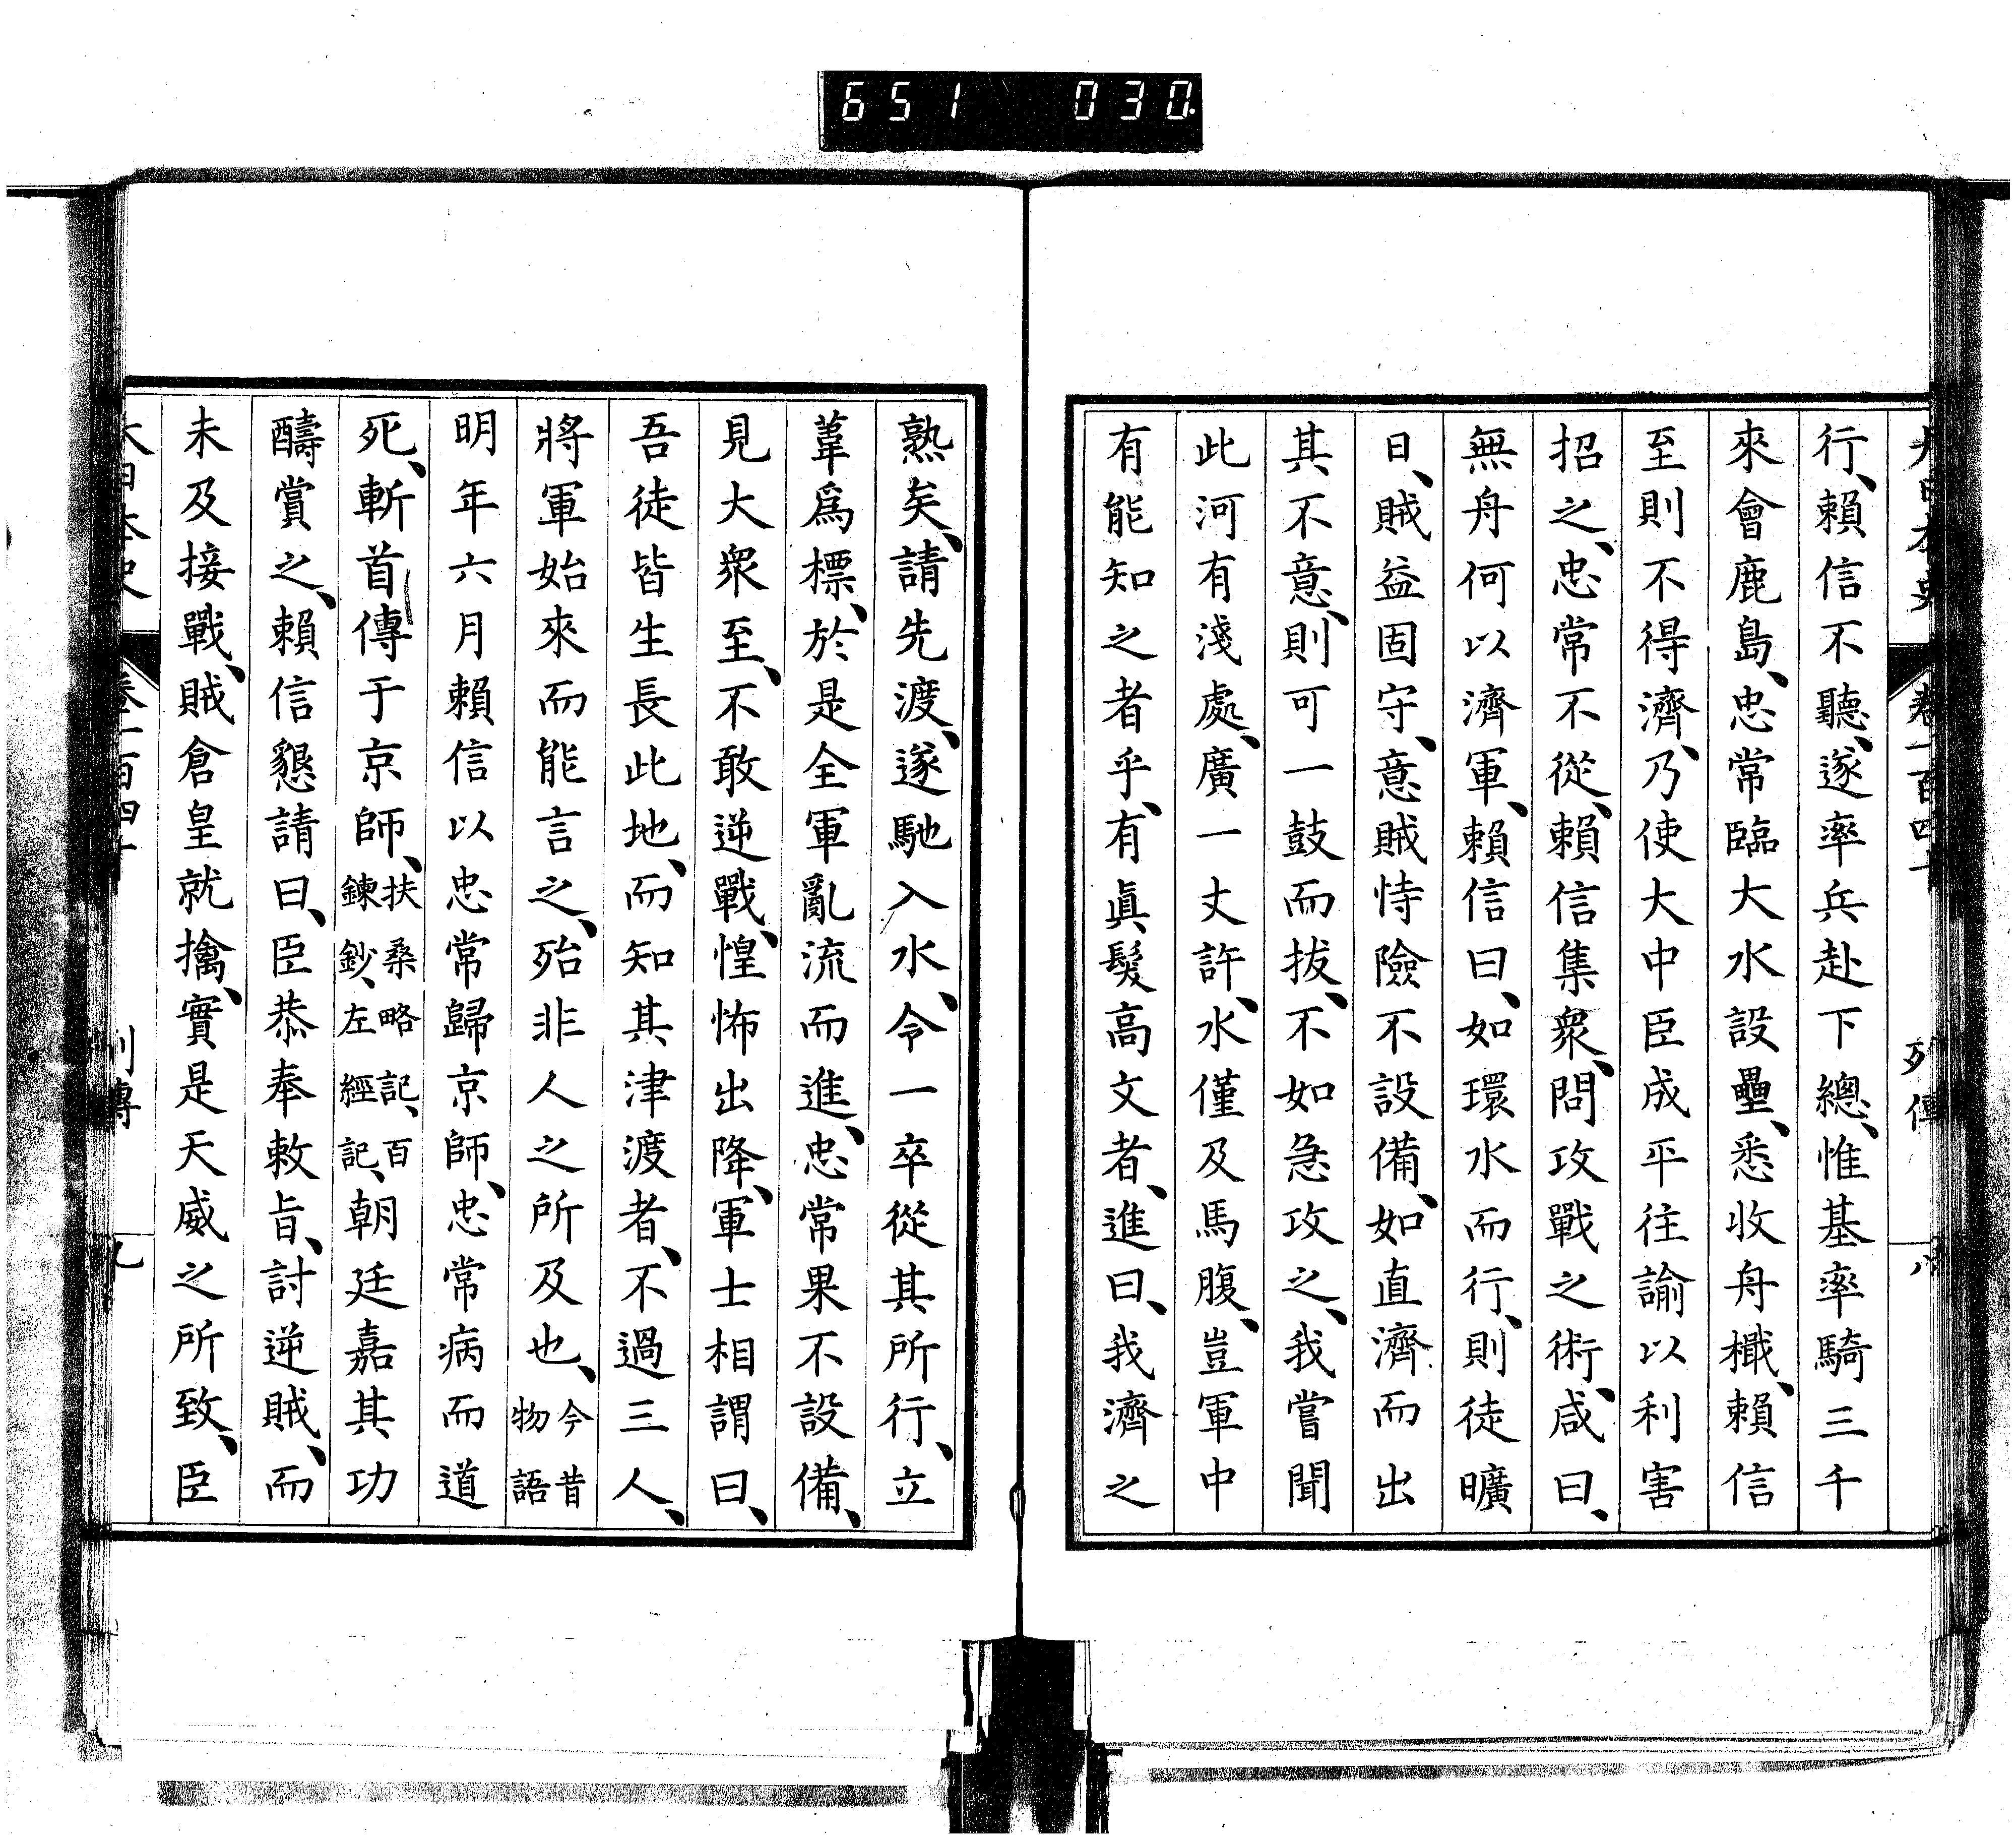 651 030
大日本史 卷一百四十 列傳 八
行、賴信不聽、遂率兵赴下總、惟基率騎三千
來會鹿島、忠常臨大水設壘、悉收舟檝、賴信
至則不得濟、乃使大中臣成平往諭以利害
招之、忠常不從、賴信集衆、問攻戰之術、咸曰、
無舟何以濟軍、賴信曰、如環水而行、則徒曠
日、賊益固守、意賊恃險不設備、如直濟而出
其不意、則可一鼓而拔、不如急攻之、我嘗聞
此河有淺處、廣一丈許、水僅及馬腹、豈軍中
有能知之者乎、有眞髮高文者、進曰、我濟之
熟矣、請先渡、遂馳入水、令一卒從其所行、立
葦爲標、於是全軍亂流而進、忠常果不設備、
見大衆至、不敢逆戰、惶怖出降、軍士相謂曰、
吾徒皆生長此地、而知其津渡者、不過三人、
將軍始來而能言之、殆非人之所及也、今昔物語
明年六月賴信以忠常歸京師、忠常病而道
死、斬首傳于京師、扶桑略記、百鍊鈔、左經記、朝廷嘉其功
醻賞之、賴信懇請曰、臣恭奉敕旨、討逆賊、而
未及接戰、賊倉皇就擒、實是天威之所致、臣
大日本史 卷一百四十 列傳 九